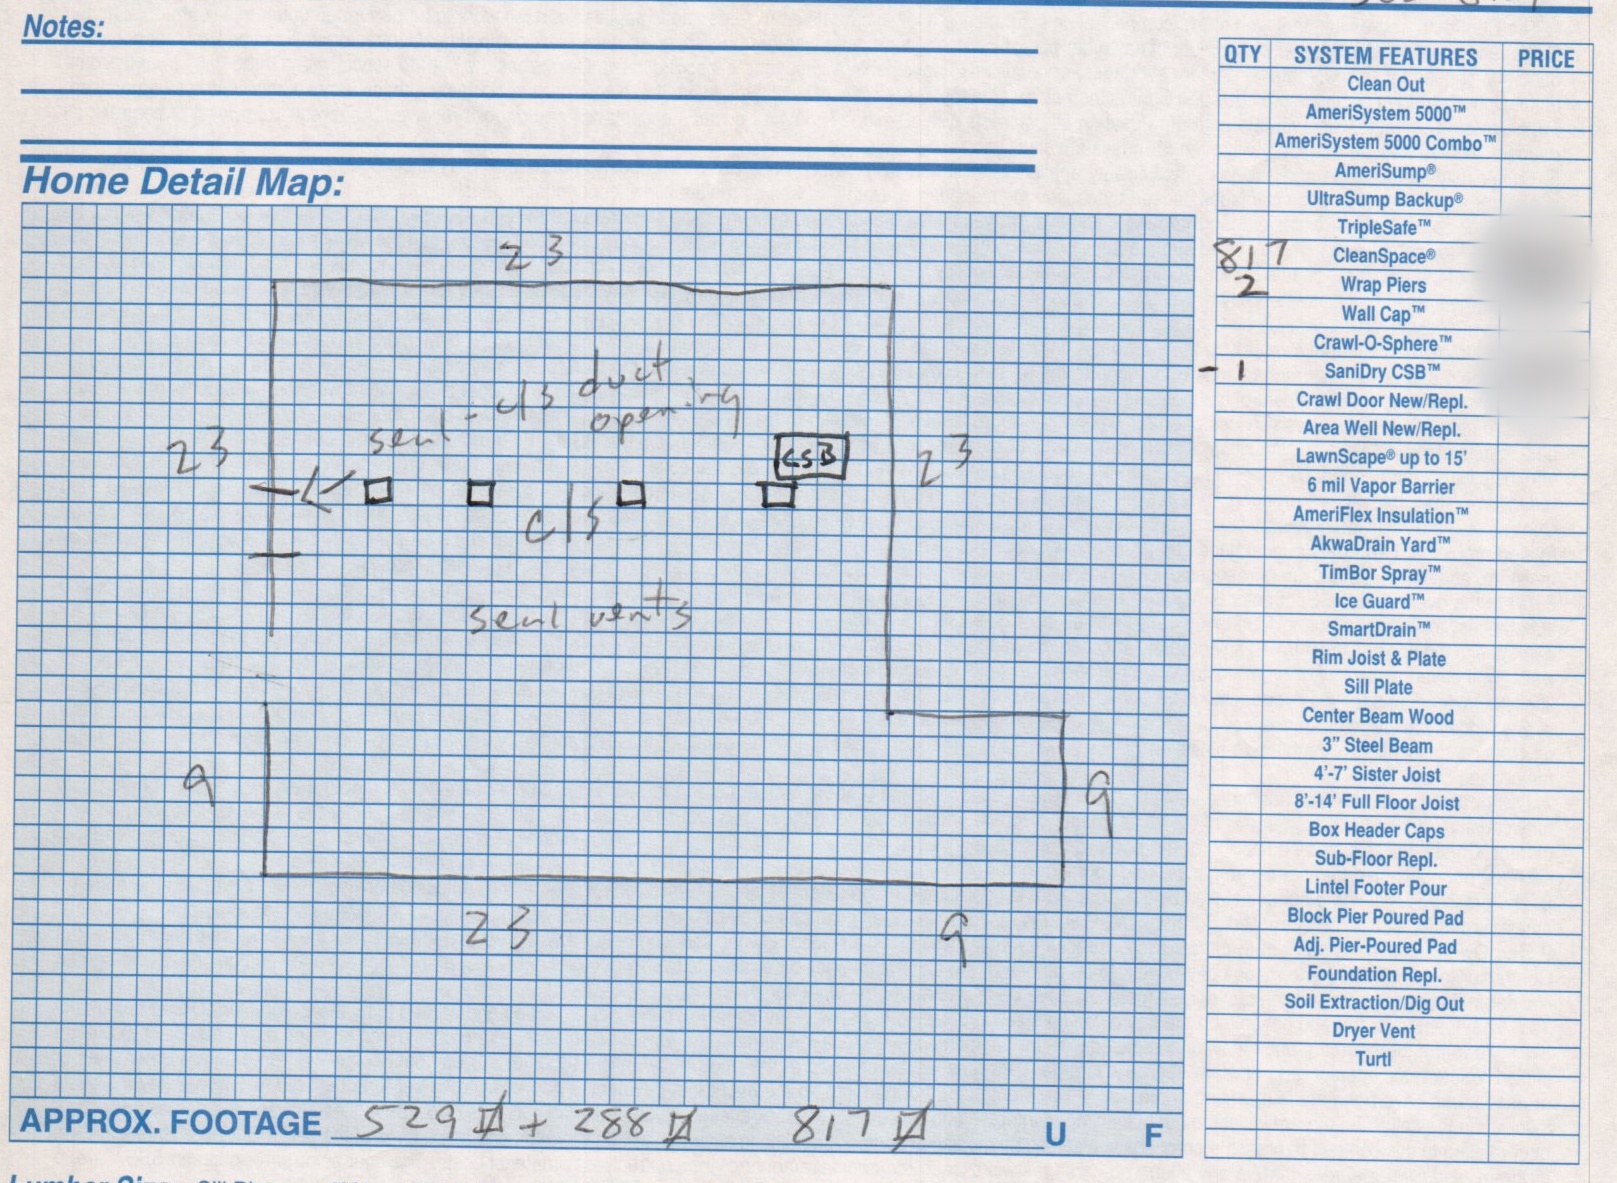 Notes:
Home Detail Map:
23
seal - c/s duct
opening
23
CSB
23
c/s
seal vents
9
9
23
9
APPROX. FOOTAGE 529 + 288 817 U F
QTY SYSTEM FEATURES PRICE
Clean Out
AmeriSystem 5000™
AmeriSystem 5000 Combo™
AmeriSump®
UltraSump Backup®
TripleSafe™
817 CleanSpace®
2 Wrap Piers
Wall Cap™
Crawl-O-Sphere™
- 1 SaniDry CSB™
Crawl Door New/Repl.
Area Well New/Repl.
LawnScape® up to 15'
6 mil Vapor Barrier
AmeriFlex Insulation™
AkwaDrain Yard™
TimBor Spray™
Ice Guard™
SmartDrain™
Rim Joist & Plate
Sill Plate
Center Beam Wood
3” Steel Beam
4’-7’ Sister Joist
8’-14’ Full Floor Joist
Box Header Caps
Sub-Floor Repl.
Lintel Footer Pour
Block Pier Poured Pad
Adj. Pier-Poured Pad
Foundation Repl.
Soil Extraction/Dig Out
Dryer Vent
Turtl